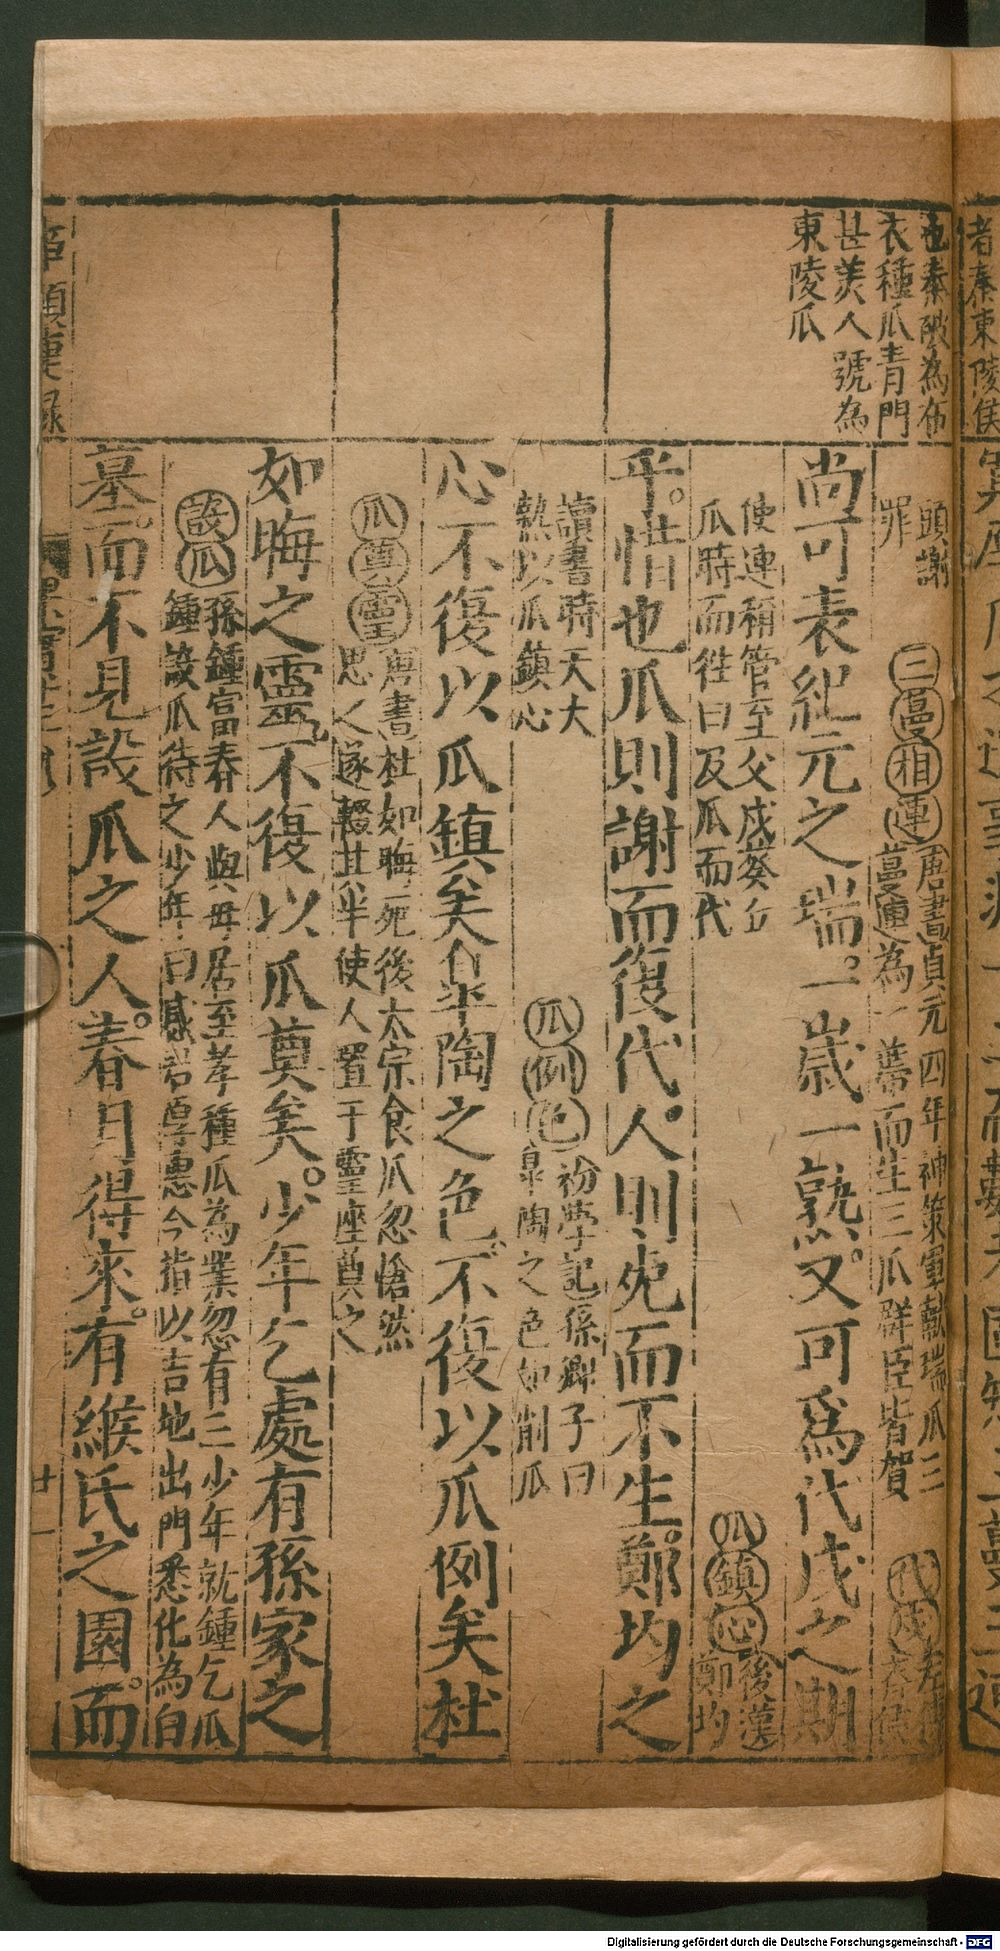 者秦東陵侯
也秦破為布
衣種瓜青門
甚美人號為
東陵瓜
頭謝
罪
三蔓相連
唐書貞元四年神策軍獻瑞瓜三
蔓連為一蔕而生三瓜群臣皆賀
代戍
左傳
齊侯
尚可表紀元之瑞。一歲一熟。又可爲代戍之期
使連稱管至父戍葵丘
瓜時而徃曰及瓜而代
瓜鎮心
後漢
鄭均
乎。惜也瓜則謝而復代。人則死而不生。鄭均之
讀書時天大
熱以瓜鎮心
瓜例色
初學記孫卿子曰
皋陶之色如削瓜
心不復以瓜鎮矣。皋陶之色。不復以瓜例矣杜
瓜奠靈
唐書杜如晦死後太宗食瓜忽愴然
思之遂輟其半使人置于靈座奠之
如晦之靈。不復以瓜奠矣。少年乞處有孫家之
設瓜
孫鍾富春人與母居至孝種瓜為業忽有三少年就鍾乞瓜
鍾設瓜待之少年曰感君尊惠今指以吉地出門悉化為白
墓而。不見設瓜之人。春月得來。有緱氏之園。而
廿一
Digitalisierung gefördert durch die Deutsche Forschungsgemeinschaft - DFG